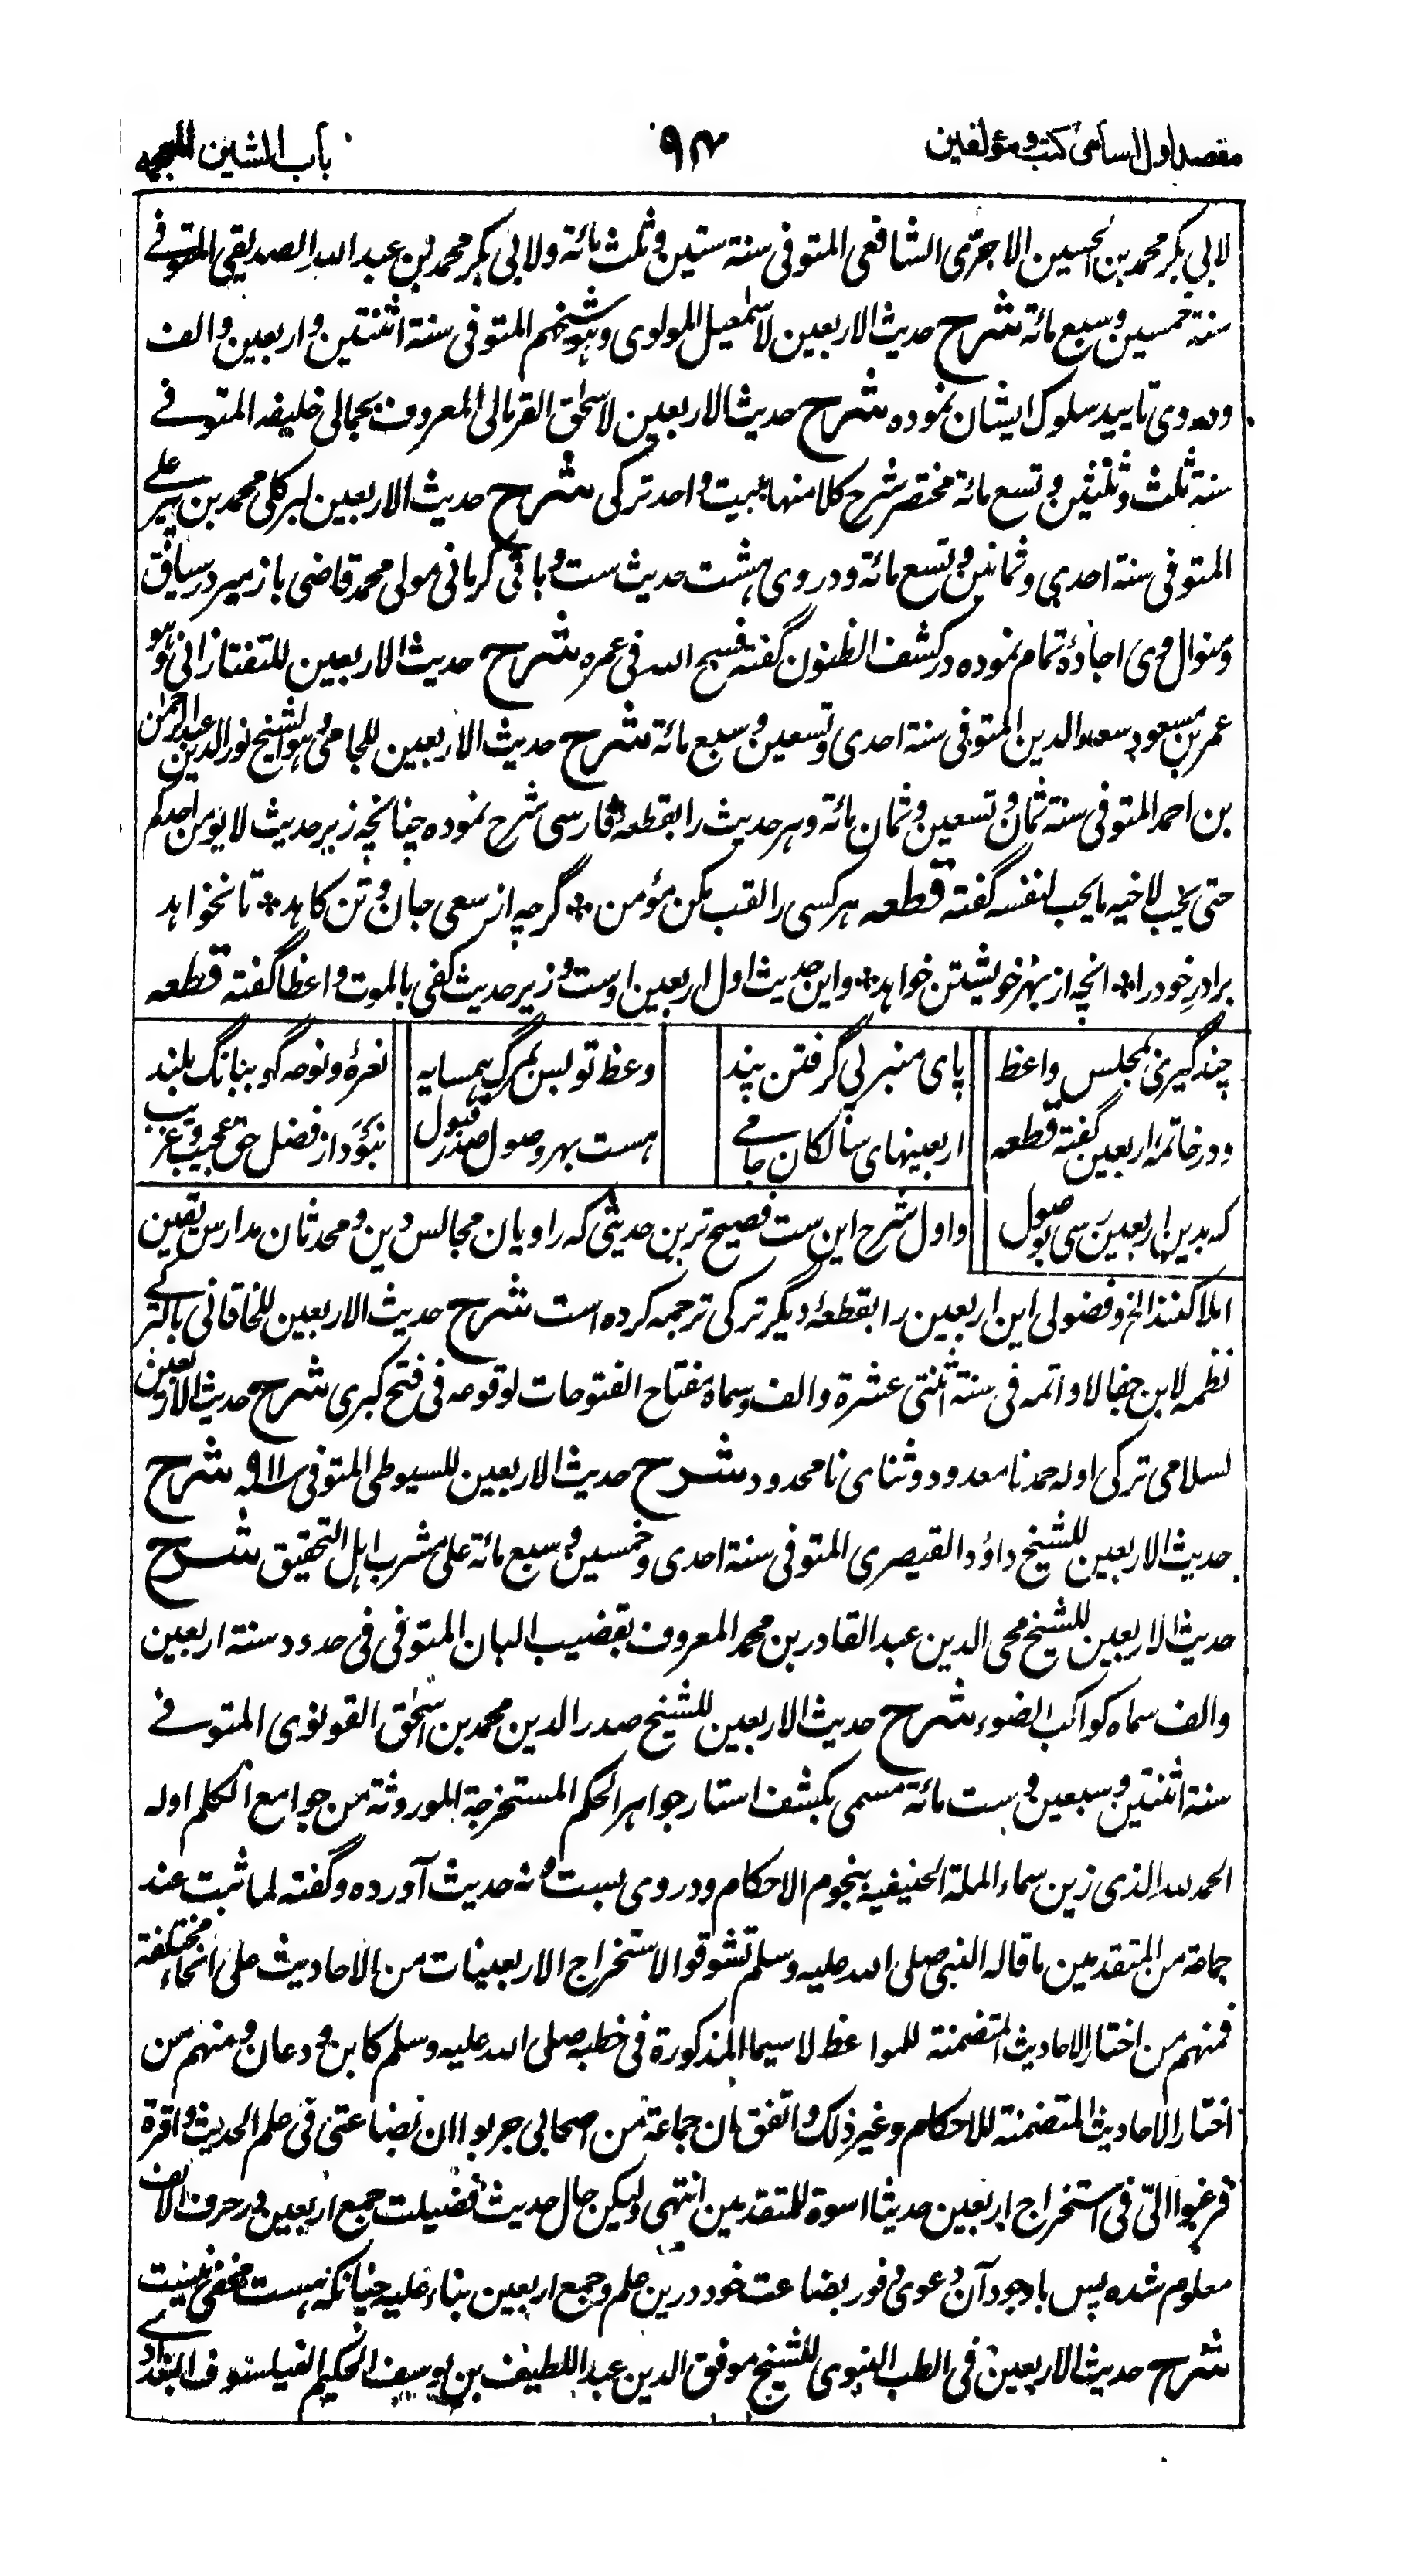 مقصد اول اسامی کتب و مؤلفین
۹۴
باب الشین المعجمه
لابی بکر محمد بن الحسین الاجرّی الشافعی المتوفی سنة ستین و ثلث مائة ولابی بکر محمد بن عبد الله الصدیقی المتوفے
سنة خمسین و سبع مائة شرح حدیث الاربعین لاسمٰعیل المولوی وهو شیخهم المتوفی سنة اثنتین و اربعین والف
ودروی تایید سلوک ایشان نموده شرح حدیث الاربعین لاسحٰق القرمالی المعروف بجمالی خلیفه المتوفے
سنة ثلث و ثلثین و تسع مائة مختصر شرح کلا منها ببیت واحد ترکی شرح حدیث الاربعین لبرکلی محمد بن پیر علے
المتوفی سنة احدی وثمانین و تسع مائة ودروی هشت حدیث ست و باقی کرمانی مولی محمد قاضی بازمیر در سیاق
ومنوال وی اجادةً تمام نموده در کشف الظنون گفته فسح الله فی عمره شرح حدیث الاربعین للتفتازانی وهو
عمر بن مسعود سعد الدین المتوفی سنة احدی و تسعین و سبع مائة شرح حدیث الاربعین للجامی وهو الشیخ نور الدین عبد الرحمٰن
بن احمد المتوفی سنة ثمان و تسعین و ثمان مائة و هر حدیث را بقطعهٔ فارسی شرح نموده چنانچه زیر حدیث لا یؤمن احدکم
حتی یحب لاخیه ما یحب لنفسه گفته قطعه هر کسی را لقب مکن مؤمن * گرچه از سعی جان و تن کاهد * تا نخواهد
برادرِ خود را * انچه از بهر خویشتن خواهد * واین حدیث اول اربعین اوست و زیر حدیث کفی بالموت واعظا گفته قطعه
چند گیری بمجلس واعظ پای منبر پی گرفتن پند وعظ تو بس بمرگ همسایه نعرهٔ و نوحه گو ببانگ بلند
ودر خاتمهٔ اربعین گفته قطعه اربعینهای سالکان جامے هست بهر وصول صدر قبول نبود از فضل حق عجیب و غریب
که بدین اربعین رسی بوصول واول شرح این ست فصیح ترین حدیثی که راویان مجالس دین و محدثان مدارس یقین
املا کنند الخ و فضولی این اربعین را بقطعهٔ دیگر ترکی ترجمه کرده است شرح حدیث الاربعین للخاقانی بالترکے
نظمه لابن جغالا واتمه فی سنة اثنتی عشرة والف وسماه مفتاح الفتوحات لوقوعه فی فتح کبری شرح حدیث الاربعین
لسلامی ترکی اوله حمد نامعدود و ثنای نامحدود شرح حدیث الاربعین للسیوطی المتوفی ۹۱۱ شرح
حدیث الاربعین للشیخ داؤد القیصری المتوفی سنة احدی و خمسین و سبع مائة علی مشرب اهل التحقیق شرح
حدیث الاربعین للشیخ محی الدین عبد القادر بن محمد المعروف بقضیب البان المتوفی فی حدود سنة اربعین
والف سماه کواکب الضوء شرح حدیث الاربعین للشیخ صدر الدین محمد بن اسحٰق القونوی المتوفے
سنة اثنتین و سبعین و ست مائة مسمی بکشف استار جواهر الحکم المستخرجة الموروثة من جوامع الکلم اوله
الحمد لله الذی زین سماء الملة الحنیفیه بنجوم الاحکام ودروی بست و نه حدیث آورده و گفته لما ثبت عند
جماعة من المتقدمین ما قاله النبی صلی الله علیه وسلم تشوقوا لاستخراج الاربعینات من الاحادیث علی انحاء مختلفة
فمنهم من اختار الاحادیث المتضمنة للمواعظ لاسیما المذکورة فی خطبه صلی الله علیه وسلم کابن ودعان ومنهم من
اختار الاحادیث المتضمنة للاحکام وغیر ذلک واتفق ان جماعة من اصحابی جربوا ان بضاعتی فی علم الحدیث وافرة
فرغبوا الیّ فی استخراج اربعین حدیثا اسوة للمتقدمین انتهی ولیکن حال حدیث فضیلت جمع اربعین در حرف الالف
معلوم شده پس باوجود آن دعوی وفور بضاعت خود درین علم و جمع اربعین بناء علیه چنانکه هست مخفی نیست
شرح حدیث الاربعین فی الطب النبوی للشیخ موفق الدین عبد اللطیف بن یوسف الحکیم الفیلسوف البغدادے